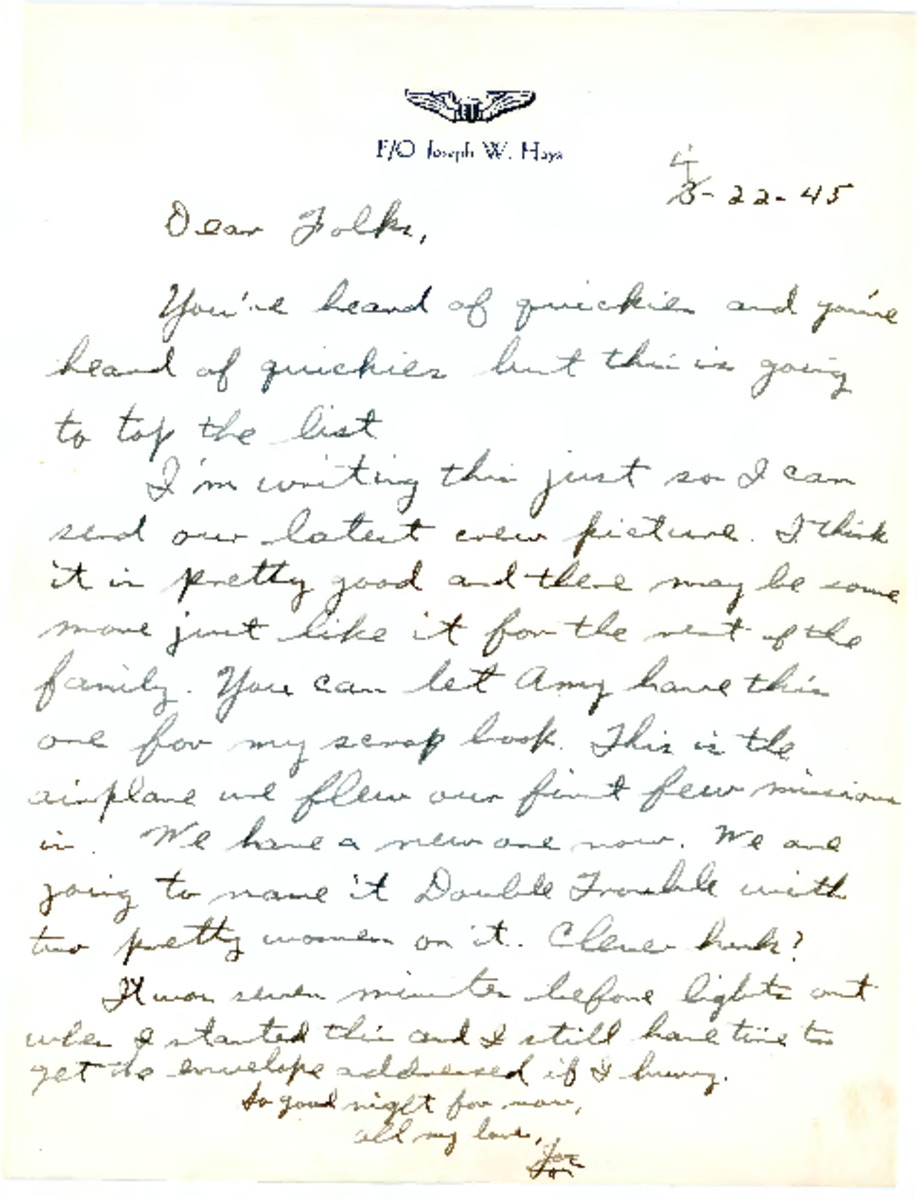 F/O Joseph W. Hays
4-22-45
Dear Folks,
You've heard of quickies and you've
heard of quickies but this is going
to top the list
I'm writing this just so I can
send our latest crew picture. I think
it is pretty good and there may be some
more just like it for the rest of the
family. You can let Amy have this
one for my scrap book. This is the
airplane we flew our first few missions
in. We have a new one now. We are
going to name it Double Trouble with
two pretty women on it. Clever huh?
It was seven minutes before lights out
when I started this and I still have time to
get the envelope addressed if I hurry.
So good night for now,
all my love,
Joe